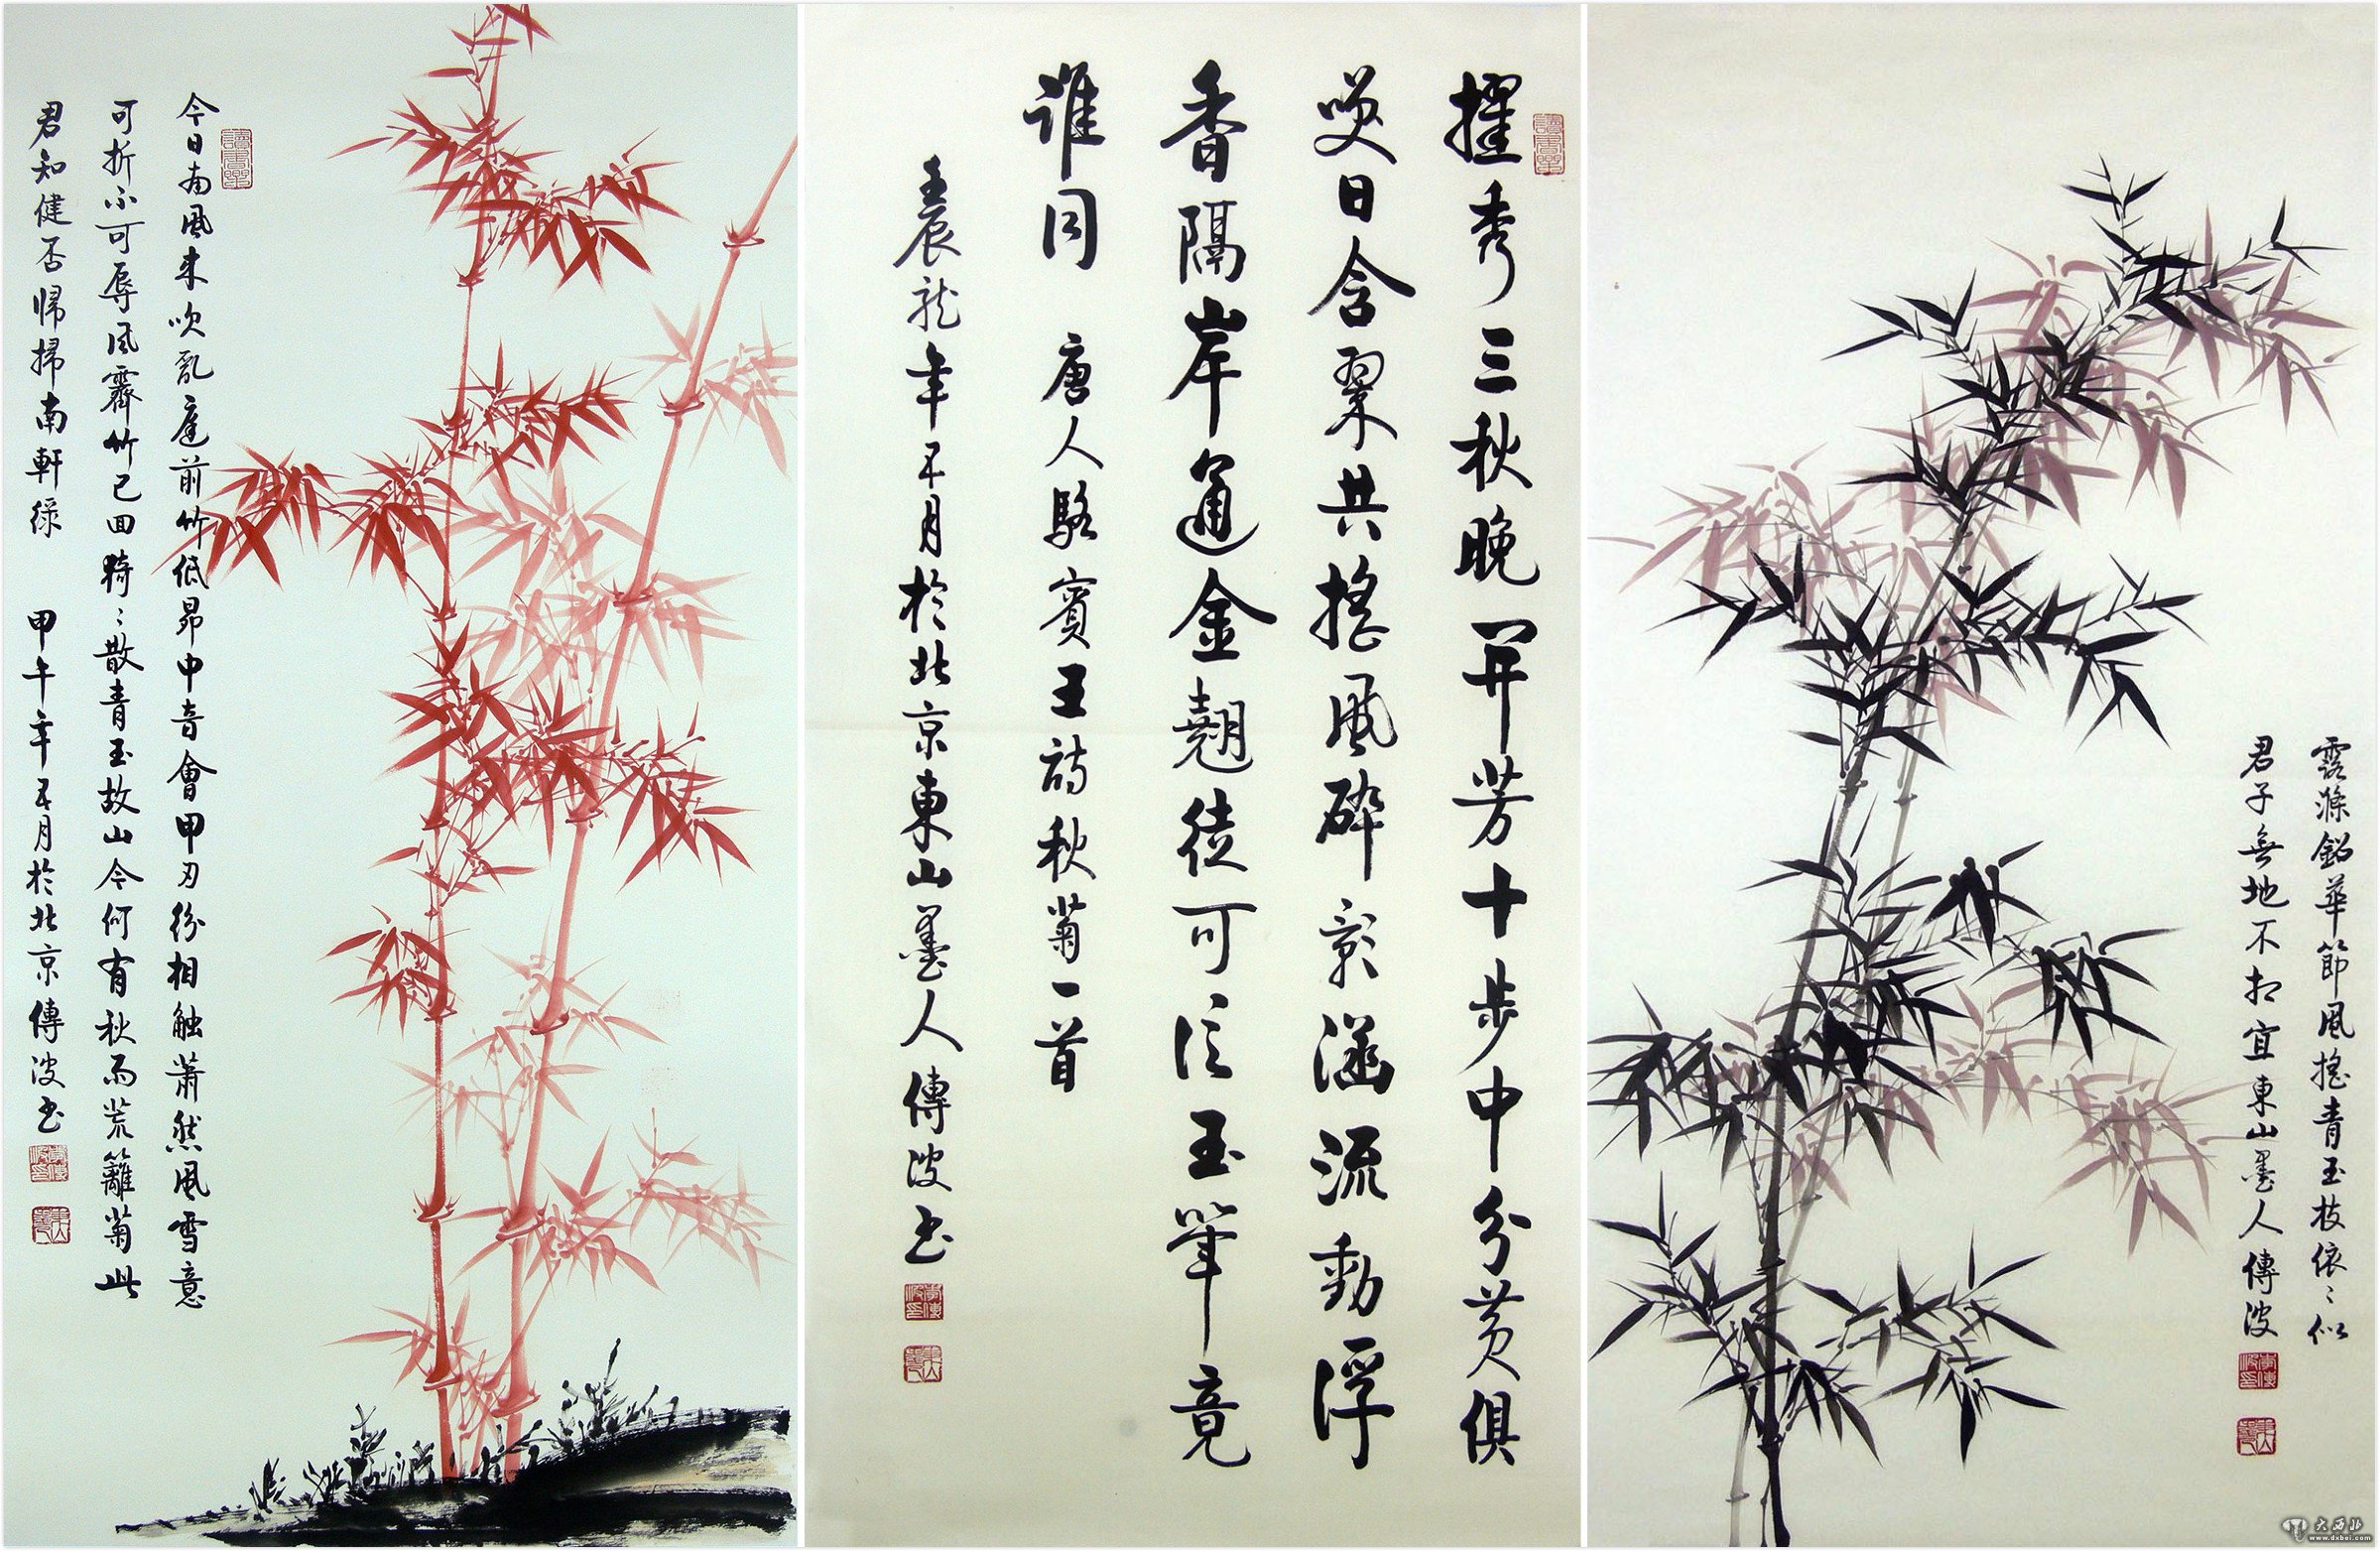 今日南風來吹亂庭前竹低昂中音會甲刃紛相觸蕭然風雪意
可折不可辱風霽竹已回猗〻散青玉故山今何有秋雨荒籬菊此
君知健否歸掃南軒綠 甲午年五月於北京傳波书
擢秀三秋晚開芳十步中分黃俱
笑日含翠共搖風碎影涵流動浮
香隔岸通金翹徒可泛玉筆竟
誰同 唐人駱賓王詩秋菊一首
壬辰龍年五月於北京東山墨人傳波书
露滌鉛華節風搖青玉枝依〻似
君子無地不相宜 東山墨人傳波
大西北
www.dxbei.com